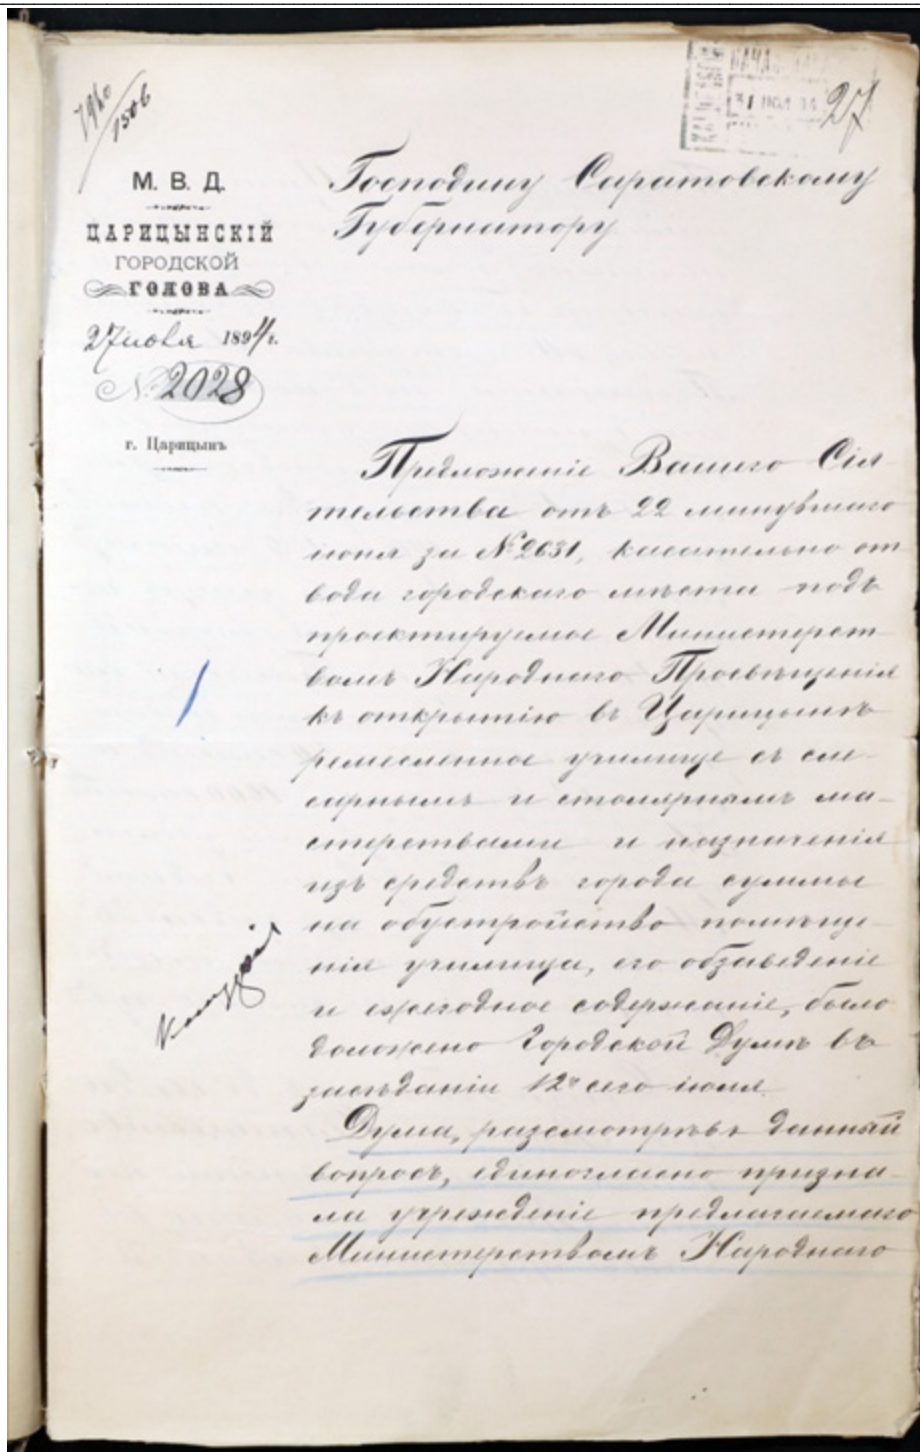 27
М. В. Д.
ЦАРИЦЫНСКІЙ
ГОРОДСКОЙ
ГОЛОВА
27 июля 1894 г.
№ 2028
г. Царицынъ
Господину Саратовскому
Губернатору
Предложеніе Вашего Сія-
тельства отъ 22 минувшаго
іюня за № 2631, касательно от
вода городскаго мѣста подъ
проектируемое Министерст
вомъ Народнаго Просвѣщенія
къ открытію въ Царицынѣ
ремесленное училище съ сле-
сарнымъ и столярнымъ ма-
стерствами и назначенія
изъ средствъ города суммы
на обустройство помѣще-
нія училища, его обзаведеніе
и ежегодное содержаніе, было
доложено Городской Думѣ въ
засѣданіи 12го сего іюля.
Дума, разсмотрѣвъ данный
вопросъ, единогласно призна-
ла учрежденіе предлагаемаго
Министерствомъ Народнаго